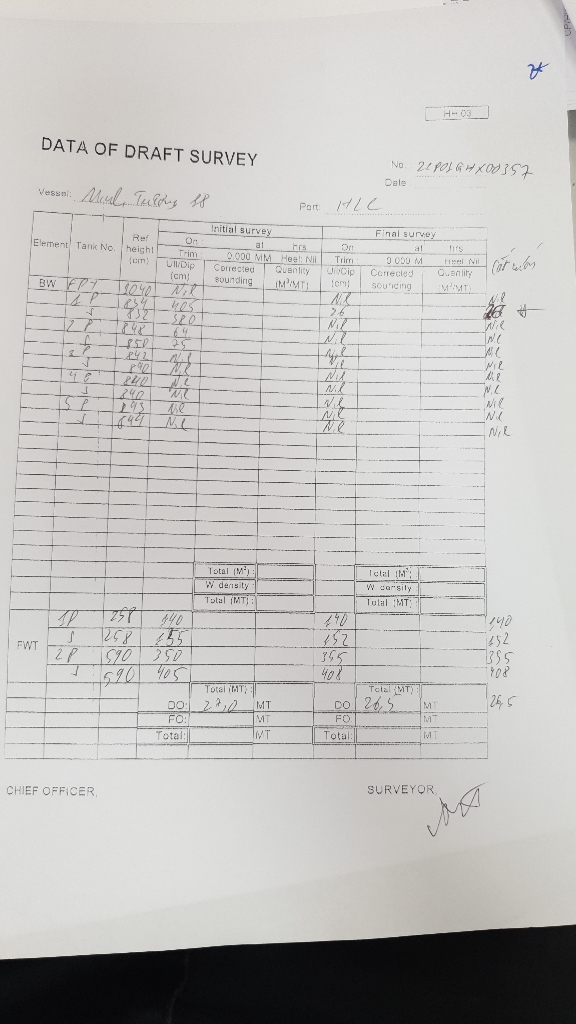 HH 03
DATA OF DRAFT SURVEY
No.
Date
Vessel: 18
Port: HLC
Initial survey Final survey
Element Tank No. Ref height (cm) On at hrs On at hrs
Trim 0.000 MM Heel: Nil Trim 0.000 M Heel: Nil
Ull/Dip (cm) Corrected sounding Quantity (M³/MT) Ull/Dip (cm) Corrected sounding Quantity (M³/MT)
BW FPT Nil Nil Nil
1 P 834 405 26
S 832 380 Nil Nil
2 P 848 64 Nil Nil
S 850 75 Nil Nil
3 P 842 Nil Nil Nil
S 840 Nil Nil Nil
4 P 840 Nil Nil Nil
S 840 Nil Nil Nil
5 P 843 Nil Nil Nil
S 844 Nil Nil Nil
Total (M³): Total (M³)
W density: W density:
Total (MT): Total (MT)
FWT 1P 258 140 140 140
S 258 155 152 152
2P 590 350 355 355
S 590 405 408 408
Total (MT): Total (MT)
DO: 27,0 MT DO 26,5 MT 26,5
FO: MT FO: MT
Total: MT Total: MT
CHIEF OFFICER, SURVEYOR,